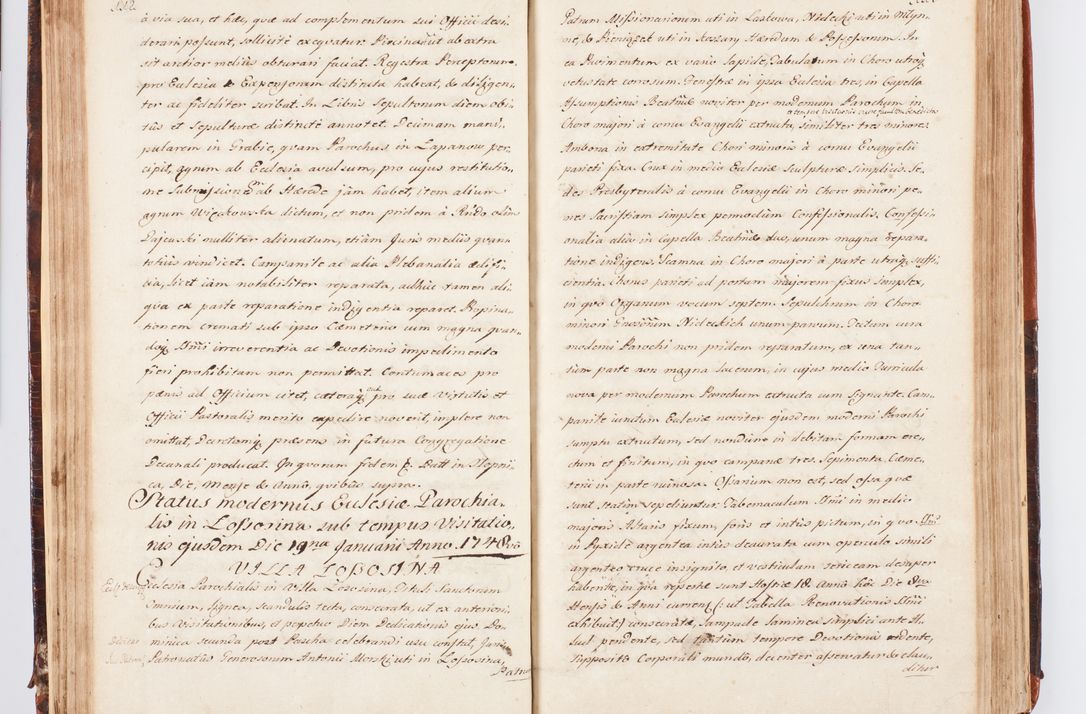 à via sua, et hæc, quæ ad complementum sui Officii desi-
derari possunt, sollicitè exequatur. Piscina ut ab extra
sit arctior melius obturari faciat. Regestra Perceptorum
pro Ecclesia & Expensorum distincta habeat, & diligen-
ter ac fideliter scribat. In Libris Sepultorum diem obi-
tûs et Sepulturæ distinctè annotet. Decimam mani-
pularem in Grabie, quam Parochus in Łapanow per-
cipit, agrum ab Ecclesia avulsum, pro cujus restitutio-
ne Submissionem ab Hærede jàm habet, item alium
agrum Więckowska dictum, et non pridem à Rndo olim
Pajewski nulliter alienatum, etiàm Juris mediis quan-
totius vindicet. Campanile ac alia Plebanalia ædifi-
cia, licet iàm notabiliter reparata, adhuc tamen ali-
qua ex parte reparatione indigentia reparet. Propina-
tionem cremati sub ipso Cæmeterio cum magna quan-
doq. SSmi irreverentia ac Devotionis impedimento
fieri prohibitam non permittat. Contumaces pro
pænis ad Officium citet, cæteraq. pro suæ virtutis et
Officii Pastoralis merito expedire noverit, implere non
omittat. Decretumq. præsens in futura Congregatione
Decanali producat. In quorum fidem &. Datt in
Die, Mense & Anno, quibus supra.
Status modernus Ecclesiæ Parochia-
lis in Łossosina sub tempus Visitatio-
nis ejusdem Die 19na Januarii Anno 1748vo
VILLA ŁOSOSINA
Ecclesia Parochialis in Villa Łososina, Tituli Sanctorum
Omnium, lignea, scandulis tecta, consecrata, ut ex anteriori-
bus Visitationibus, et perpetuo Diem Dedicationis ejus Do-
minica secunda post Pascha celebrandi usu constat, Juris
Patronatûs Generosorum Antonii Morski uti in Łososina,
Patru-
Patrum Missionariorum uti in Laskowa, Nidecki uti in Młyn-
ne, & Pieniążek uti in Hæredum & Possessorum. In
ea Pavimentum ex vario lapide, Tabulatum in Choro utroq.
vetustate corosum. Fenestræ in ipsa Ecclesia tres, in Capella
Assumptionis Beatmæ noviter per modernum Parochum in
Choro majori à cornu Evangelii extructa, similiter tres minores
Ambona in extremitate Chori minoris à cornu Evangelii
parieti fixa. Crux in medio Ecclesiæ Sculpturæ simplicis. Se-
des Presbyteralis à cornu Evangelii in Choro minori pe-
nes Sacristiam simplex per modum Confessionalis. Confessi-
onalia alia in Capella Beatmæ duo, unum magna repara-
tione indigens. Scamna in Choro majori à parte utraq. suffi-
cientia. Chorus parieti ad portam majorem fixus simplex,
in quo Organum vocum septem. Sepulchrum in Choro
minori Gnosorum Nideckich unum parvum. Tectum cura
moderni Parochi non pridem reparatum, ex una tan-
tum parte non magna lacerum, in cujus medio Turricula
nova per modernum Parochum extructa cum Signante. Cam-
panile juxta Ecclesiæ noviter ejusdem moderni Parochi
sumptu extructum, sed nondum in debitam formam erec-
tum et finitum, in quo campanæ tres. Sepimenta Cæme-
terii in parte ruinosa. Ossarium non est, sed ossa quæ
sunt statim sepeliuntur. Tabernaculum SSmi in medio
majoris Altaris fixum, foris et intus pictum, in quo SSmum
in Pyxide argentea intus deaurata cum operculo simili
argenteo cruce insignito, et vestibulum sericeum semper
habente, in qua repertæ sunt Hostiæ 18. Anno hoc Die
Mensis & Anni curren: (: ut Tabella Renovationis SSmi
exhibuit:) consecratæ, Lampade laminea simplici ante Al-
tare pendente, sed tantum tempore Devotionis ardente,
supposito Corporali mundo, decenter asservatur & clau-
ditur